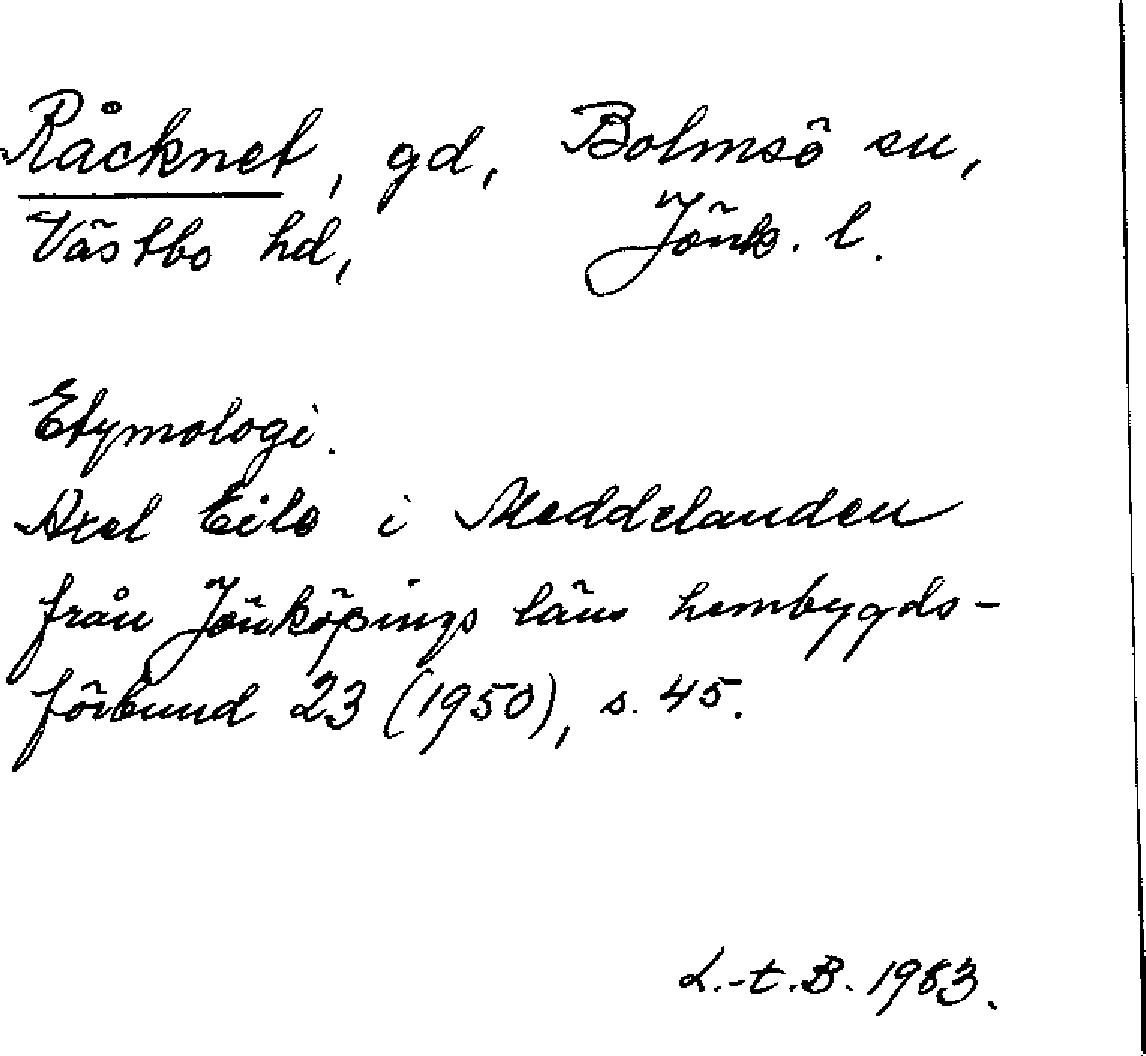 Råcknet, gd, Bolmsö sn,
Västbo hd, Jönk. l.
Etymologi.
Axel Eilo i Meddelanden
från Jönköpings läns hembygds-
förbund 23 (1950), s. 45.
L.-t. B. 1983.